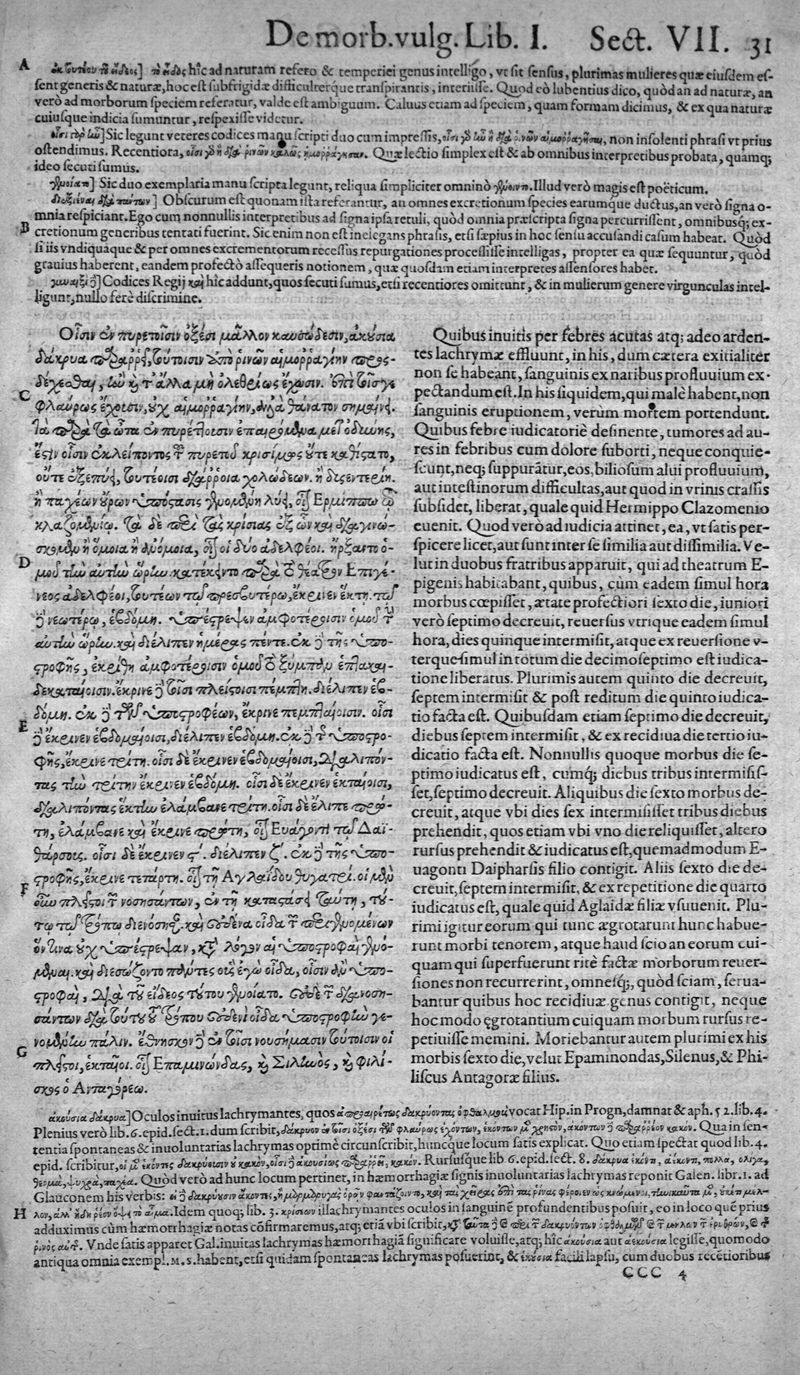 De morb. vulg. Lib. I. Sect. VII. 31
A
ἀκουσίον τοῦ εἴδεος] τοῦ εἴδεος hîc ad naturam refero & temperiei genus intelligo, vt sit sensus, plurimas mulieres quæ eiusdem es-
sent generis & naturæ, hoc est subfrigidæ difficulterque transpirantis, interiisse. Quod eò lubentius dico, quòd an ad naturæ, an
verò ad morborum speciem referatur, valde est ambiguum. Caluus etiam ad speciem, quam formam dicimus, & ex qua naturæ
cuiusque indicia sumuntur, respexisse videtur.
Sic legunt veteres codices manu scripti duo cum impressis, non insolenti phrasi vt prius
ostendimus. Recentiora, Quæ lectio simplex est & ab omnibus interpretibus probata, quamq;
ideo secuti sumus.
Sic duo exemplaria manu scripta legunt, reliqua simpliciter omninò Illud verò magis est poëticum.
Obscurum est quonam ista referantur, an omnes excretionum species earumque ductus, an verò signa o-
B
mnia respiciant. Ego cum nonnullis interpretibus ad signa ipsa retuli, quòd omnia præscripta signa percurrissent, omnibusq; ex-
cretionum generibus tentati fuerint. Sic enim non est inelegans phrasis, etsi sæpius in hoc sensu accusandi casum habeat. Quòd
si iis vndiquaque & per omnes excrementorum recessus repurgationes processisse intelligas, propter ea quæ sequuntur, quòd
grauius haberent, eandem profectò assequeris notionem, quæ quosdam etiam interpretes assensores habet.
Codices Regij καὶ hîc addunt, quos secuti sumus, etsi recentiores omittunt, & in mulierum genere virgunculas intel-
ligunt, nullo ferè discrimine.
Οἷσιν ἐν πυρετοῖσιν ὀξέσι μᾶλλον καυσώδεσιν, ἀκούσια
δάκρυα παραῤῥεῖ, τούτοισιν ἀπὸ ῥινῶν αἱμοῤῥαγίην προσ-
δέχεσθαι, ἢν καὶ τ' ἄλλα μὴ ὀλεθρίως ἔχωσιν. ἐπεὶ τοῖσί γε
C
φλαύρως ἔχουσιν, οὐχ αἱμοῤῥαγίην, ἀλλὰ θάνατον σημαίνει.
Τὰ παρὰ τὰ ὦτα ἐν πυρετοῖσιν ἐπαιρόμενα μετ' ὀδύνης,
ἔστιν οἷσιν ἐκλείποντος τοῦ πυρετοῦ κρισίμως οὔτε καθίστατο,
οὔτε ἐξεπύει, τουτέοισι διάῤῥοια χολώδεων. ἢ δυσεντερίη.
ἢ παχέων οὔρων ὑπόστασις γενομένη λύει, οἷον Ἑρμίππῳ τῷ
κλαζομενίῳ. Τὰ δὲ περὶ τὰς κρίσιας ἐξ ὧν καὶ διαγινώ-
σκομεν ἢ ὅμοια ἢ ἀνόμοια, οἷον οἱ δύο ἀδελφέοι. ἤρξαντο ὁ-
D
μοῦ τὴν αὐτὴν ὥρην. κατέκειντο παρὰ τὸ θέατρον Ἐπιγέ-
νεος ἀδελφέοι, τουτέων τῷ πρεσβυτέρῳ, ἔκρινεν ἕκτῃ. τῷ
δὲ νεωτέρῳ, ἑβδόμῃ. ὑπέστρεψεν ἀμφοτέροισιν ὁμοῦ τὴν
αὐτὴν ὥρην. καὶ διέλιπεν ἡμέρας πέντε. ἐκ δὲ τῆς ὑπο-
στροφῆς, ἐκρίθη ἀμφοτέροισιν ὁμοῦ τὸ ξύμπαν ἑπτακαι-
δεκαταίοισιν. ἔκρινε δὲ τοῖσι πλείστοισι πέμπτῃ. διέλιπεν ἑβ-
δόμῃ. ἐκ δὲ τῶν ὑποστροφέων, ἔκρινε πεμπταίοισιν. οἷσι
E
δὲ ἔκρινεν ἑβδομαίοισι, διέλιπεν ἑβδόμῃ. ἐκ δὲ τῆς ὑποστρο-
φῆς, ἔκρινε τρίτῃ. οἷσι δὲ ἔκρινεν ἑβδομαίοισι, διαλιπόν-
τας τὴν τρίτην ἔκρινεν ἑβδόμῃ. οἷσι δὲ ἔκρινεν ἑκταίοισι,
διαλιπόντας ἕκτην ἐλάμβανε τρίτῃ. οἷσι δὲ ἔλιπε πρώ-
τῃ, ἐλάμβανε καὶ ἔκρινε πρώτῃ, οἷον Εὐάγοντι τῷ Δαϊ-
θάρσους. οἷσι δὲ ἔκρινεν ς'. διέλιπεν ζ'. ἐκ δὲ τῆς ὑπο-
F
στροφῆς, ἔκρινε τετάρτῃ. οἷον τῇ Ἀγλαΐδου θυγατρί. οἱ μὲν
οὖν πλεῖστοι τῶν νοσησάντων, ἐν τῇ καταστάσει ταύτῃ, τού-
τῳ τῷ τρόπῳ διενόσησαν. καὶ οὐδένα οἶδα τῶν περιγενομένων
ὅντινα οὐχ ὑπέστρεψαν, κατὰ λόγον αἱ ὑποστροφαὶ γενό-
μεναι. καὶ διεσώζοντο πάντες οὓς ἐγὼ οἶδα, οἷσιν ἂν ὑπο-
στροφαὶ, διὰ τοῦ εἴδεος τούτου γενοίατο. οὐδὲ τῶν διανοση-
σάντων διὰ τούτου τοῦ τρόπου οὐδενὶ οἶδα ὑποστροφὴν γε-
νομένην πάλιν. ἔθνησκον δὲ ἐν τοῖσι νουσήμασιν τούτοισιν οἱ
G
πλεῖστοι, ἑκταῖοι. οἷον Ἐπαμινώνδας, καὶ Σιληνὸς, καὶ Φιλί-
σκος ὁ Ἀνταγόρεω.
Quibus inuitis per febres acutas atq; adeo arden-
tes lachrymæ effluunt, in his, dum cætera exitialiter
non se habeant, sanguinis ex naribus profluuium ex-
pectandum est. In his siquidem, qui malè habent, non
sanguinis eruptionem, verùm mortem portendunt.
Quibus febre iudicatoriè desinente, tumores ad au-
res in febribus cum dolore suborti, neque conquie-
scunt, neq; suppurãtur, eos, biliosum alui profluuium,
aut intestinorum difficultas, aut quod in vrinis crassis
subsidet, liberat, quale quid Hermippo Clazomenio
euenit. Quod verò ad iudicia attinet, ea, vt satis per-
spicere licet, aut sunt inter se similia aut dissimilia. Ve-
lut in duobus fratribus apparuit, qui ad theatrum E-
pigenis habitabant, quibus, cùm eadem simul hora
morbus cœpisset, ætate profectiori sexto die, iuniori
verò septimo decreuit, reuersus vtrique eadem simul
hora, dies quinque intermisit, atque ex reuersione v-
terque simul in totum die decimoseptimo est iudica-
tione liberatus. Plurimis autem quinto die decreuit,
septem intermisit & post reditum die quinto iudica-
tio facta est. Quibusdam etiam septimo die decreuit,
diebus septem intermisit, & ex recidiua die tertio iu-
dicatio facta est. Nonnullis quoque morbus die se-
ptimo iudicatus est, cumq; diebus tribus intermisis-
set, septimo decreuit. Aliquibus die sexto morbus de-
creuit, atque vbi dies sex intermisisset tribus diebus
prehendit, quos etiam vbi vno die reliquisset, altero
rursus prehendit & iudicatus est, quemadmodum E-
uagonti Daipharsis filio contigit. Aliis sexto die de-
creuit, septem intermisit, & ex repetitione die quarto
iudicatus est, quale quid Aglaidæ filiæ vsuuenit. Plu-
rimi igitur eorum qui tunc ægrotarunt hunc habue-
runt morbi tenorem, atque haud scio an eorum cui-
quam qui superfuerunt ritè factæ morborum reuer-
siones non recurrerint, omnesq;, quòd sciam, serua-
bantur quibus hoc recidiuæ genus contigit, neque
hoc modo ęgrotantium cuiquam morbum rursus re-
petiuisse memini. Moriebantur autem plurimi ex his
morbis sexto die, velut Epaminondas, Silenus, & Phi-
liscus Antagoræ filius.
ἀκούσια δάκρυα] Oculos inuitus lachrymantes, quos vocat Hip. in Progn, damnat & aph. 52. lib. 4.
Plenius verò lib. 6. epid. sect. 1. dum scribit, Qua in sen-
tentia spontaneas & inuoluntarias lachrymas optimè circunscribit, huncque locum satis explicat. Quo etiam spectat quod lib. 4.
epid. scribitur, Rursusque lib 6. epid. sect. 8.
Quòd verò ad hunc locum pertinet, in hæmorrhagiæ signis inuoluntarias lachrymas reponit Galen. libr. 1. ad
Glauconem his verbis:
H
Idem quoq; lib. 3. κρίσεων illachrymantes oculos in sanguinẽ profundentibus posuit, eo in loco quẽ prius
adduximus cùm hæmorrhagiæ notas cõfirmaremus, atq; etiã vbi scribit,
Vnde satis apparet Gal. inuitas lachrymas hæmorrhagiã significare voluisse, atq; hîc ἀκούσια aut ἀεκούσια legisse, quomodo
antiqua omnia exempl. M. S. habent, etsi quidam spontaneas lachrymas posuerint, & ἑκούσια facili lapsu, cum duobus recẽtioribus
CCC 4